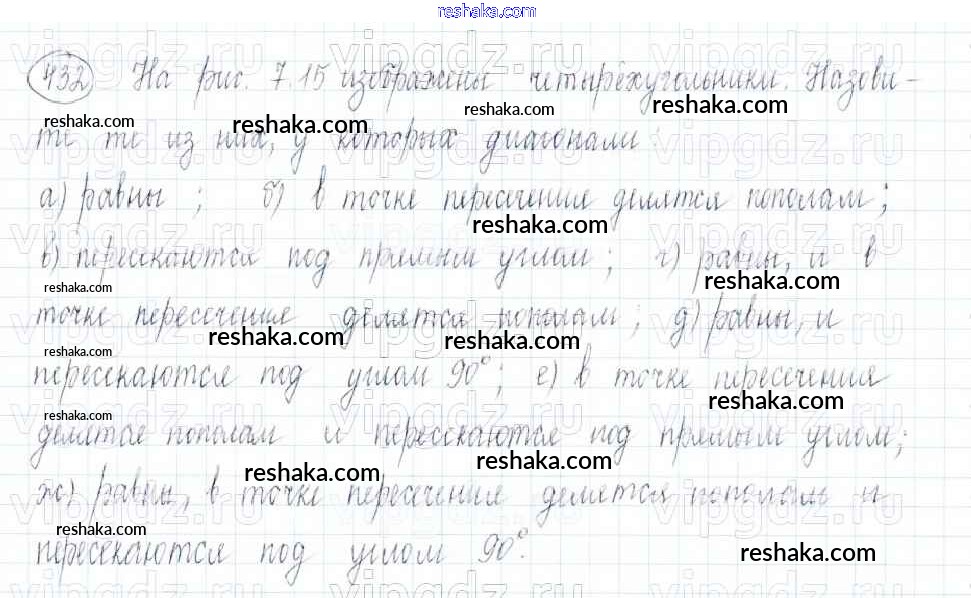 reshaka.com
432 На рис. 7.15 изображены четырёхугольники. Назови-
reshaka.com
reshaka.com
reshaka.com
те те из них, у которых диагонали
а) равны ; б) в точке пересечения делятся пополам ;
reshaka.com
в) пересекаются под прямым углом ; г) равны, и в
reshaka.com
reshaka.com
точке пересечения делятся пополам ; д) равны, и
reshaka.com
reshaka.com
reshaka.com
пересекаются под углом 90° ; е) в точке пересечения
reshaka.com
reshaka.com
делятся пополам и пересекаются под прямым углом ;
reshaka.com
reshaka.com
ж) равны, в точке пересечения делятся пополам и
reshaka.com
пересекаются под углом 90°.
reshaka.com